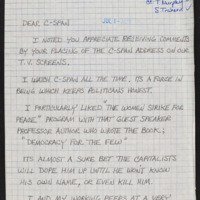 DEAR C-SPAN
I NOTED YOU APPRECIATE RECEIVING COMMENTS
BY YOUR PLACING OF THE C-SPAN ADDRESS ON OUR
T.V. SCREENS.
I WATCH C-SPAN ALL THE TIME. IT'S A FORCE IN
BEING WHICH KEEPS POLITICIANS HONEST.
I PARTICULARLY LIKED "THE WOMENS STRIKE FOR
PEACE" PROGRAM WITH THAT GUEST SPEAKER
PROFESSOR AUTHOR WHO WROTE THE BOOK;
"DEMOCRACY FOR THE FEW"
ITS ALMOST A SURE BET THE CAPITALISTS
WILL DOPE HIM UP UNTIL HE WON'T KNOW
HIS OWN NAME, OR EVEN KILL HIM.
I AND MY WORKING PEERS AT A VERY